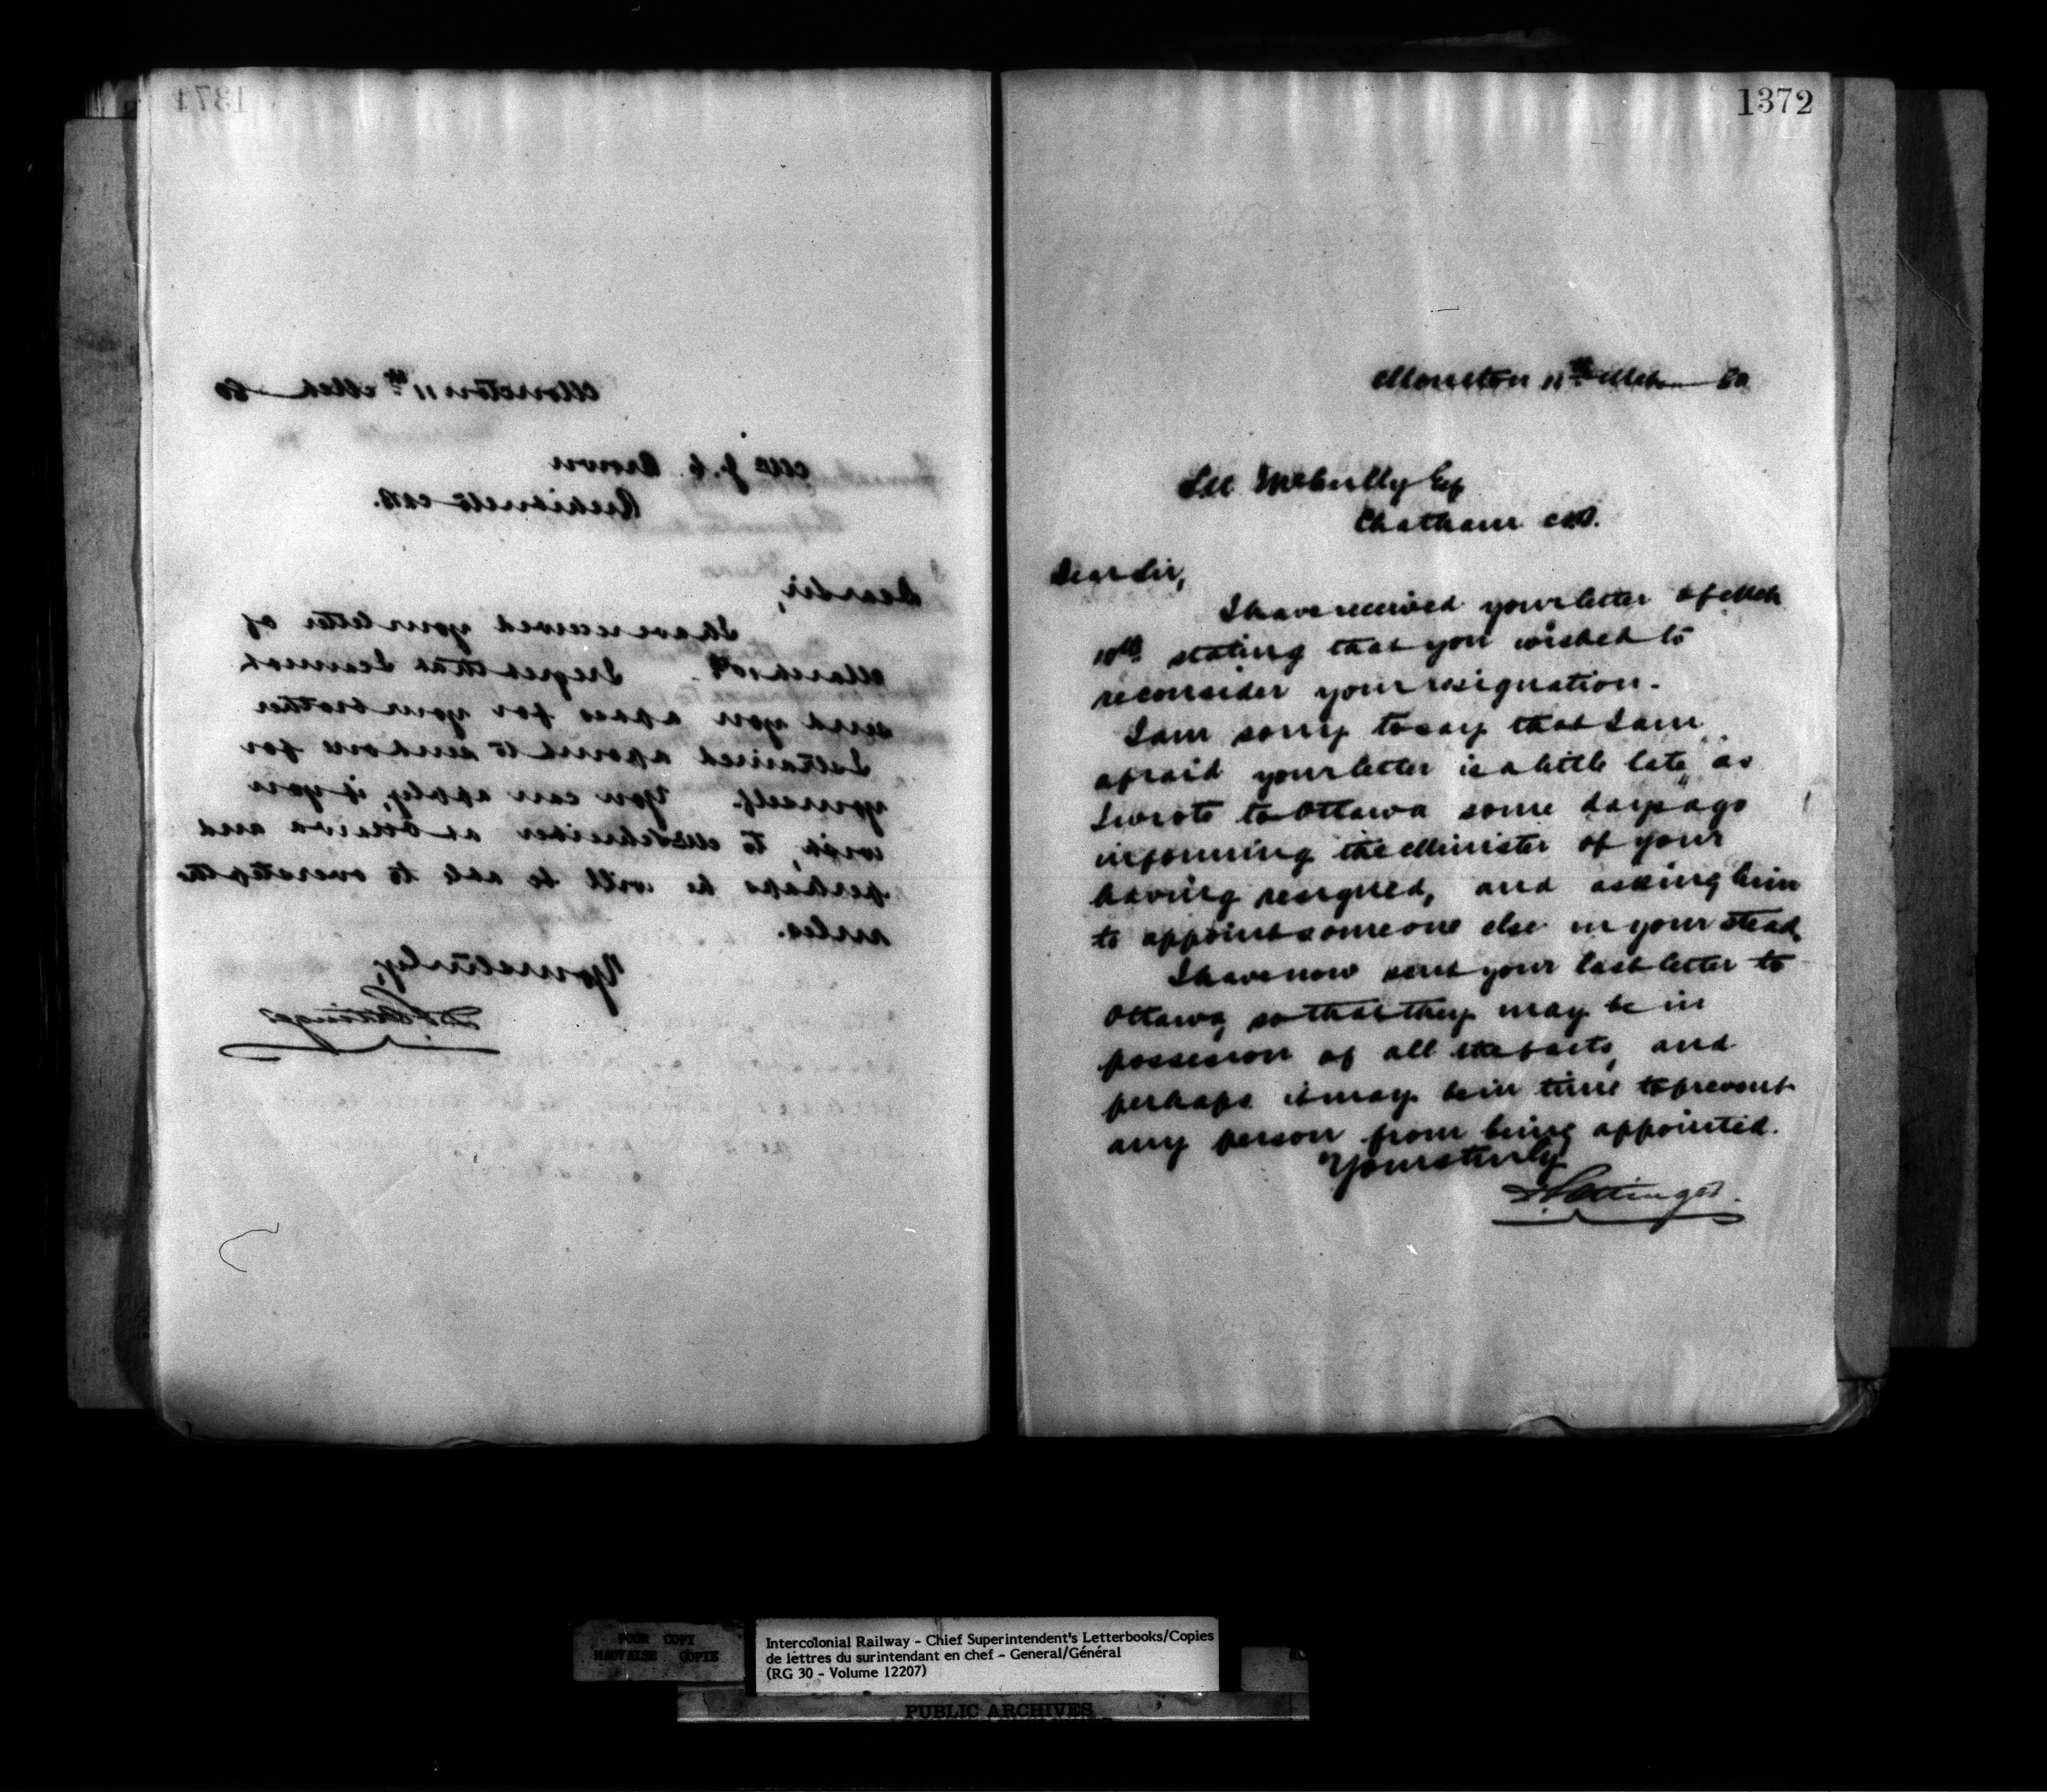 1371
Moncton 11th Mch 80
Mr J. C. Brown
Richibucto N.B.
Dear Sir,
I have received your letter of
March 10th. I regret that I cannot
send you a pass for your brother
I strained a point to send one for
yourself. You can apply, if you
wish, to Mr Schreiber at Ottawa and
perhaps he will be able to overstep the
rules.
Yours truly,
D Pottinger
1372
Moncton 11th Mch 80
McCully Esq
Chatham N.B.
Dear Sir,
I have received your letter of Mch
10th stating that you wished to
reconsider your resignation.
I am sorry to say that I am
afraid your letter is a little late as
I wrote to Ottawa some days ago
informing the Minister of your
having resigned, and asking him
to appoint someone else in your stead.
I have now sent your last letter to
Ottawa, so that they may be in
possession of all the facts, and
perhaps it may be in time to prevent
any person from being appointed.
Yours truly
D Pottinger.
POOR COPY
MAUVAISE COPIE
Intercolonial Railway - Chief Superintendent's Letterbooks/Copies
de lettres du surintendant en chef - General/Général
(RG 30 - Volume 12207)
PUBLIC ARCHIVES